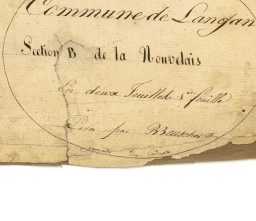 Commune de Langan
Section B de la Nouvelais
En deux Feuilles 1re feuille
Levé par